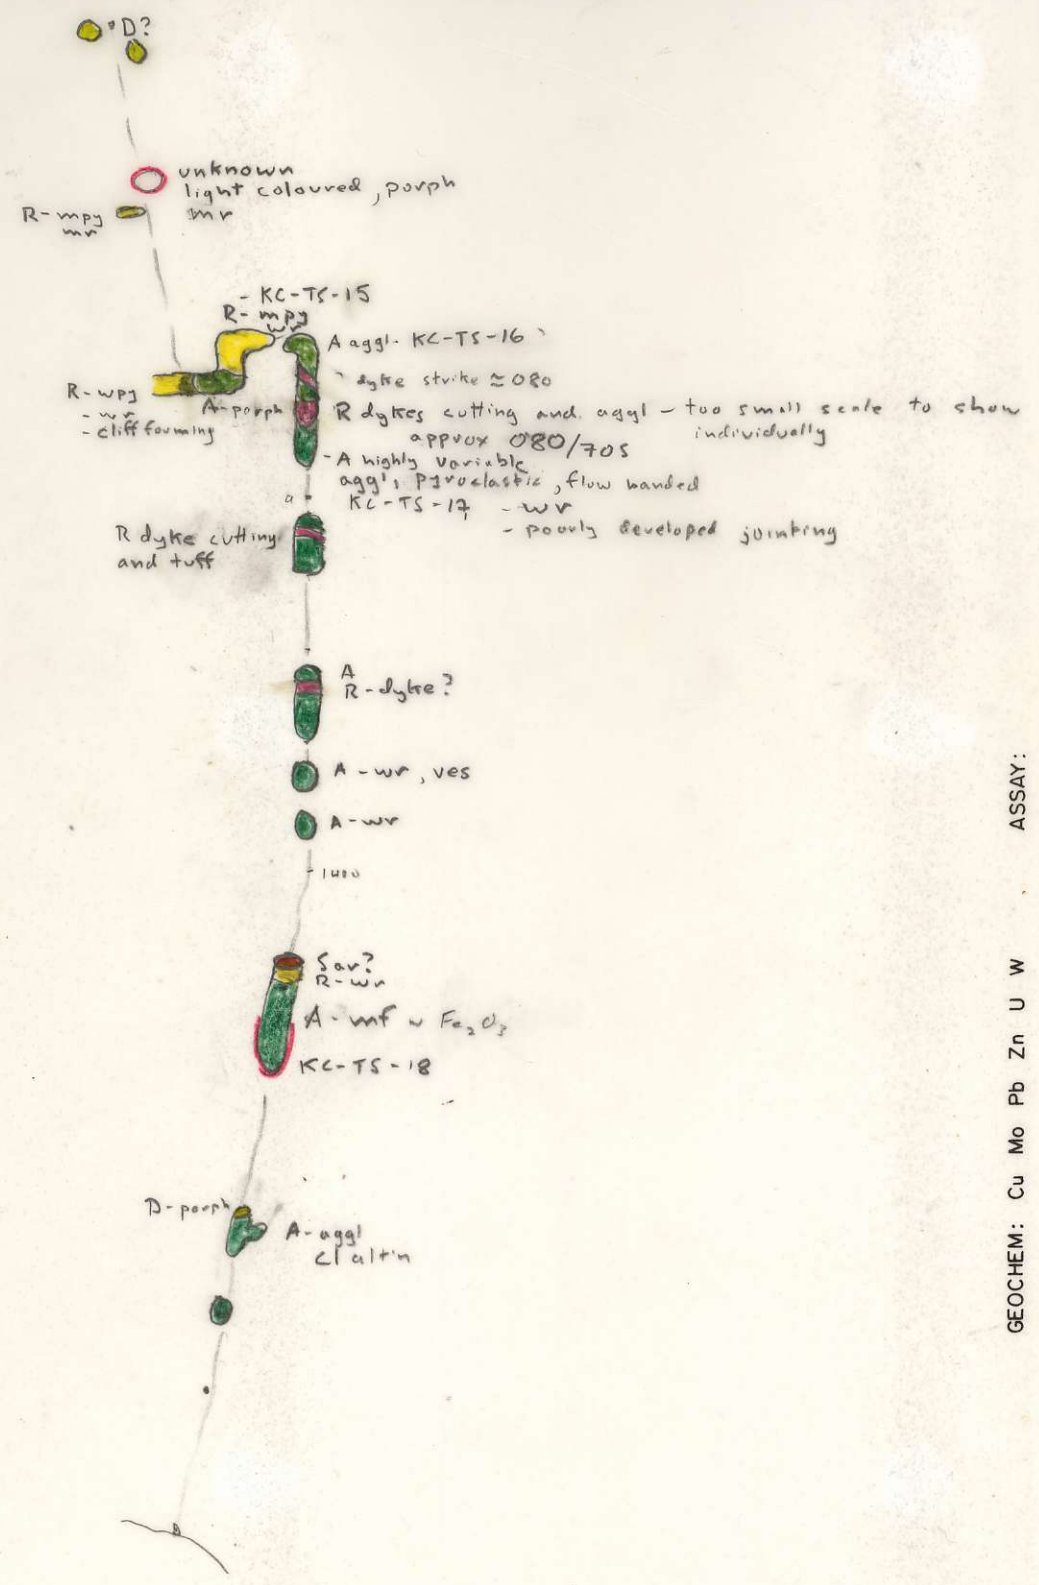 D?
unknown
light coloured, porph
mr
R-mpy
mr
- KC-TS-15
R-mpy
wr
A aggl. KC-TS-16
dyke strike ≈ 080
R-wpy
- wr
- cliff forming
A-porph
R dykes cutting and. aggl - too small scale to show
individually
approx 080/70S
- A highly variable
aggl, pyroclastic, flow banded
KC-TS-17 - wr
- poorly developed jointing
R dyke cutting
and tuff
A
R-dyke?
A-wr, ves
A-wr
1400
Sar?
R-wr
A-mf w Fe₂O₃
KC-TS-18
D-porph
A-aggl
cl alt'n
GEOCHEM: Cu Mo Pb Zn U W ASSAY: